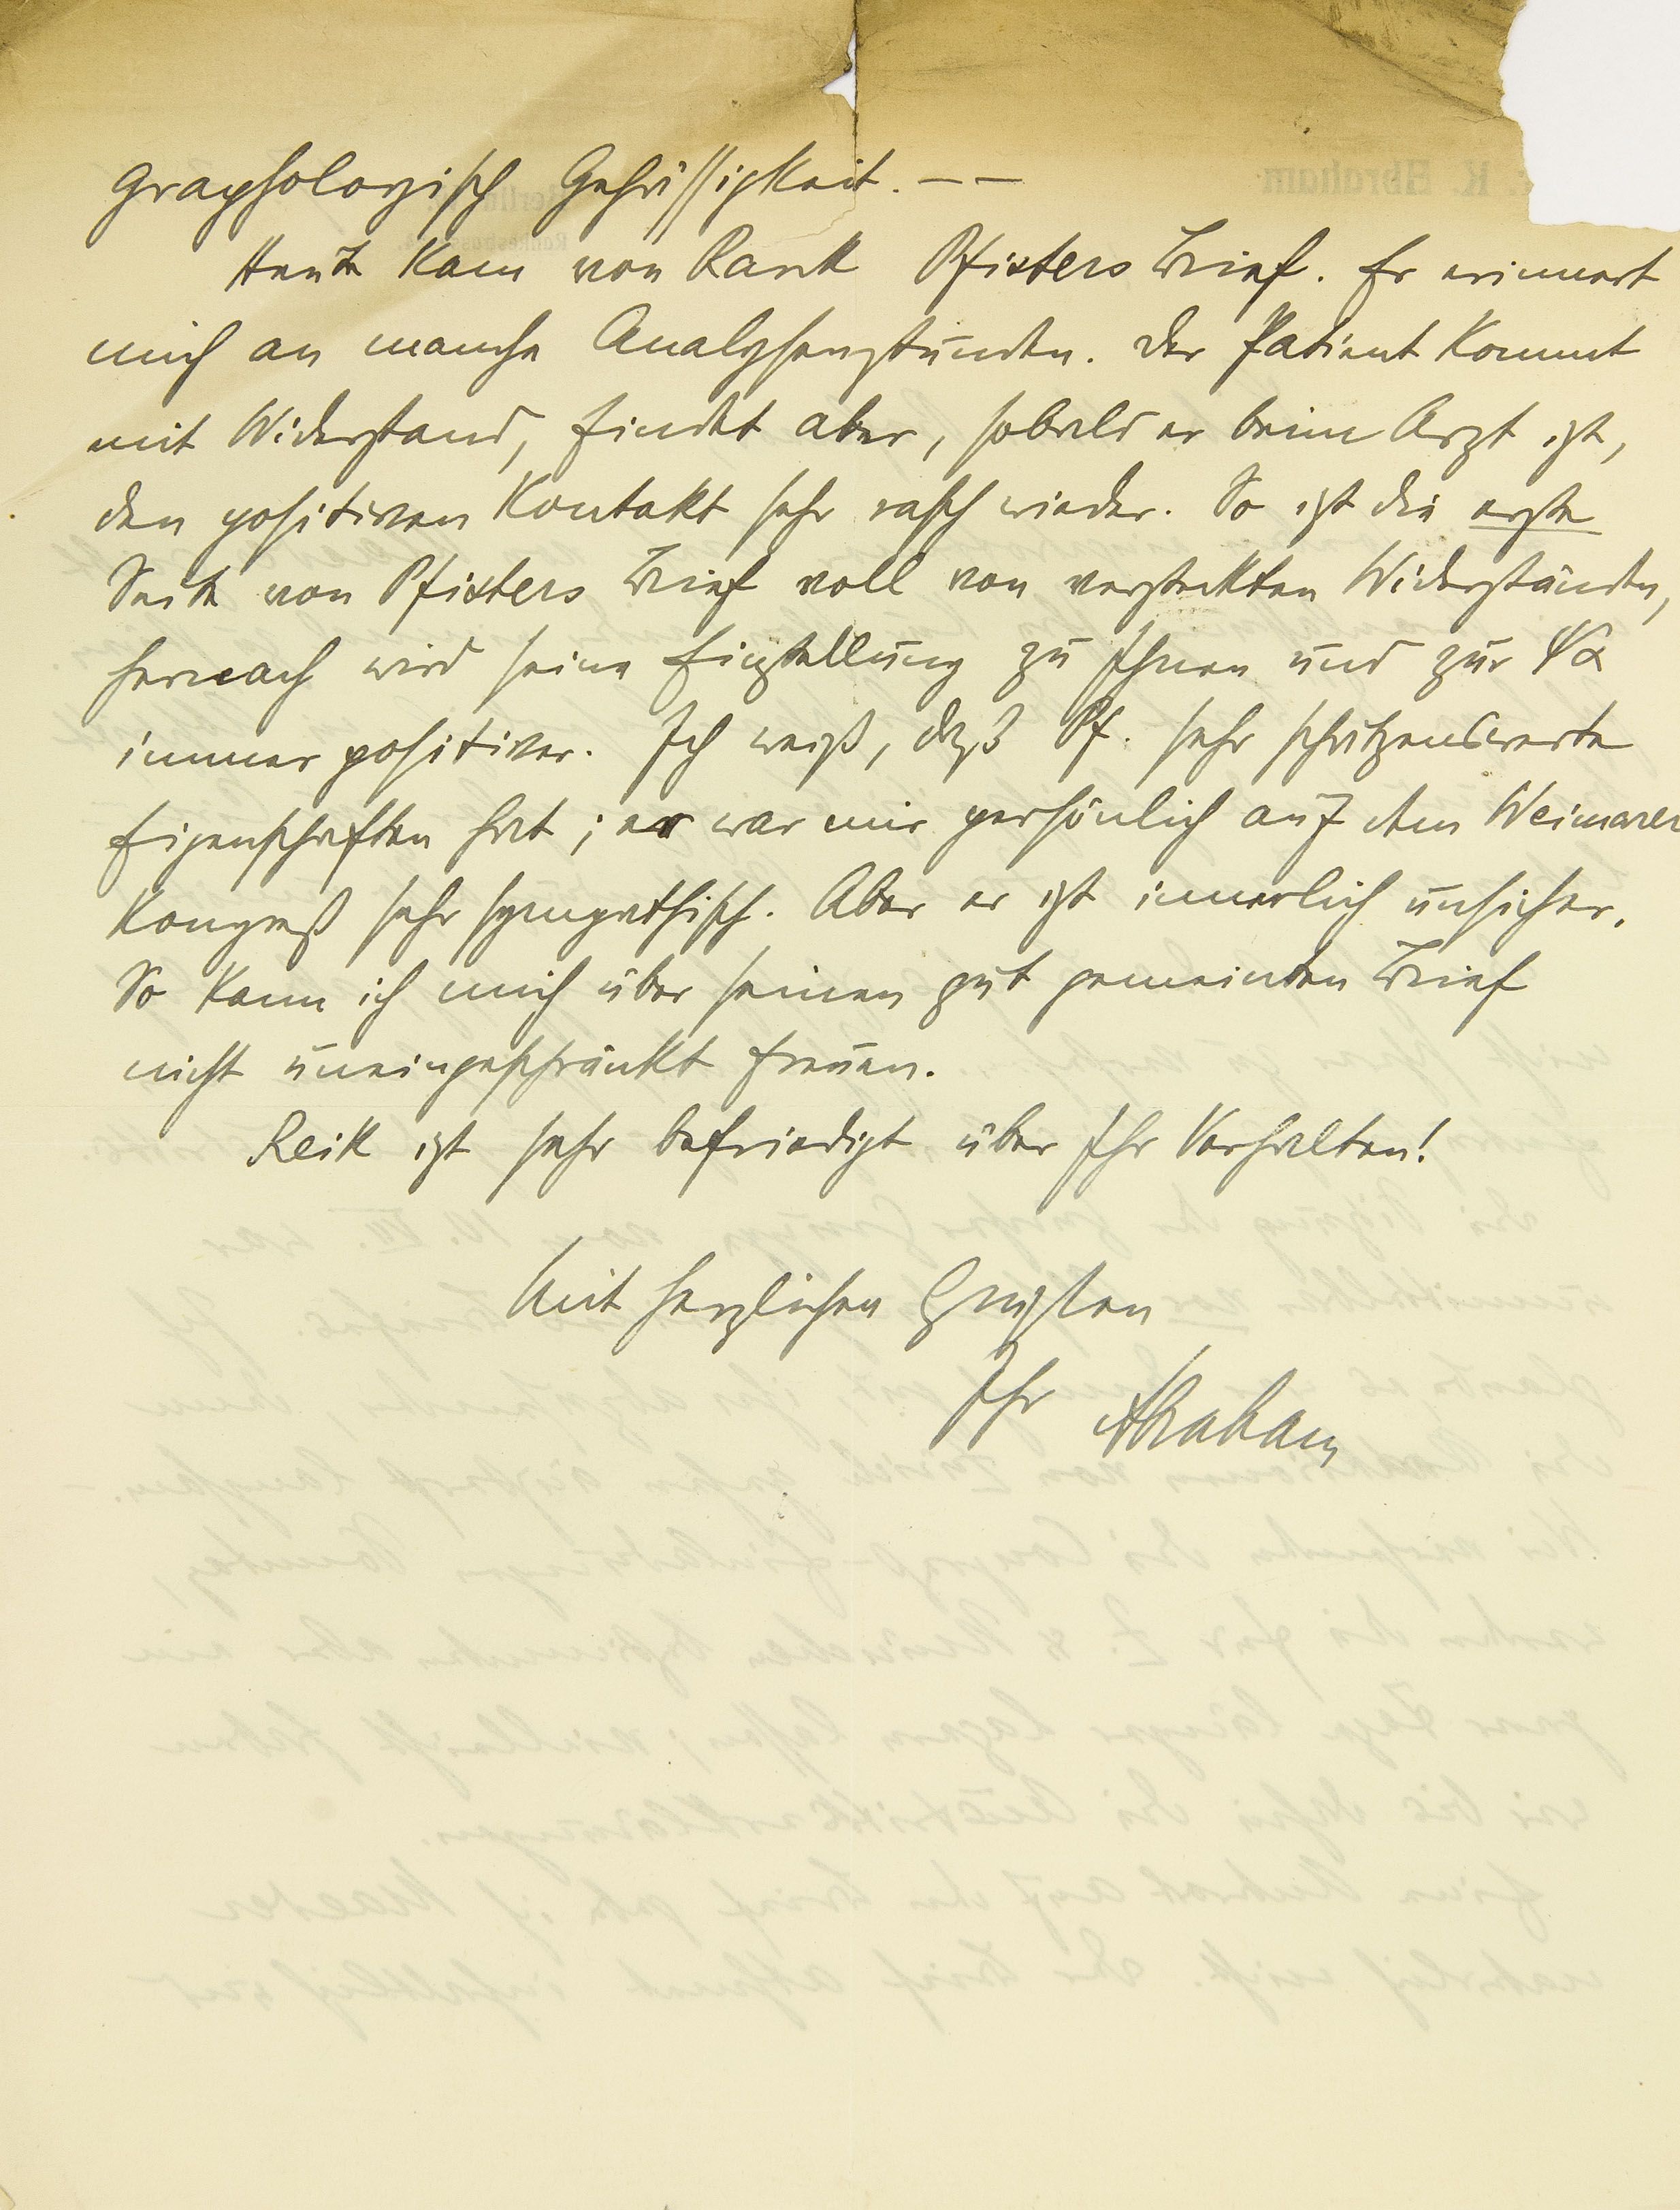 graphologisch Gehässigkeit. — —
Heute kam von Rank Pfisters Brief. Er erinnert
mich an manche Analysenstunden. Der Patient kommt
mit Widerstand, findet aber, sobald er beim Arzt ist,
den positiven Kontakt sehr rasch wieder. So ist die erste
Seite von Pfisters Brief voll von versteckten Widerständen,
hernach wird seine Einstellung zu Ihnen und zur ΨΑ
immer positiver. Ich weiß, daß Pf. sehr schätzenswerte
Eigenschaften hat; er war mir persönlich auf dem Weimarer
Kongreß sehr sympathisch. Aber er ist innerlich unsicher.
So kann ich mich über seinen gut gemeinten Brief
nicht uneingeschränkt freuen.
Reik ist sehr befriedigt über Ihr Verhalten!
Mit herzlichen Grüßen
Ihr Abraham